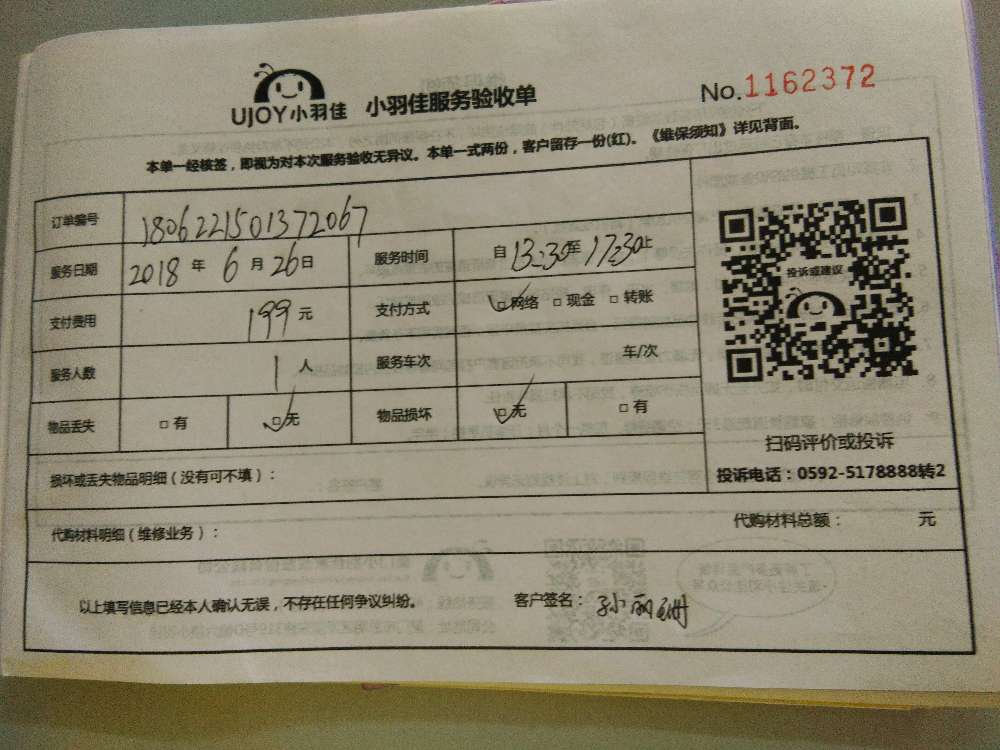 UJOY小羽佳 小羽佳服务验收单 No.1162372
本单一经核签，即视为对本次服务验收无异议。本单一式两份，客户留存一份(红)。《维保须知》详见背面。
订单编号 1806221501372067
服务日期 2018 年 6 月 26 日 服务时间 自 13:30 至 17:30 止
支付费用 199 元 支付方式 ☑网络 □现金 □转账
服务人数 1 人 服务车次 车/次
物品丢失 □有 ☑无 物品损坏 ☑无 □有
投诉或建议
扫码评价或投诉
投诉电话：0592-5178888转2
损坏或丢失物品明细（没有可不填）：
代购材料明细（维修业务）： 代购材料总额： 元
以上填写信息已经本人确认无误，不存在任何争议纠纷。 客户签名：孙丽珊